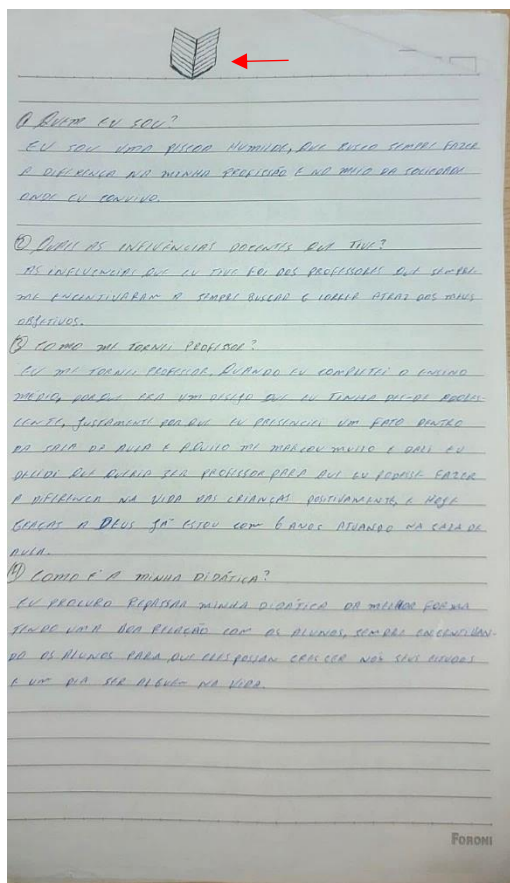 ① QUEM EU SOU?
EU SOU UMA PESSOA HUMILDE, QUE BUSCO SEMPRE FAZER
A DIFERENÇA NA MINHA PROFISSÃO E NO MEIO DA SOCIEDADE
ONDE EU CONVIVO.
② QUAIS AS INFLUÊNCIAS DOCENTES QUE TIVE?
AS INFLUENCIAS QUE EU TIVE FOI DOS PROFESSORES QUE SEMPRE
ME ENCENTIVARAM A SEMPRE BUSCAR E CORRER ATRAZ DOS MEUS
OBJETIVOS.
③ COMO ME TORNEI PROFESSOR?
EU ME TORNEI PROFESSOR, QUANDO EU COMPLETEI O ENSINO
MÉDIO, PORQUE ERA UM DESEJO QUE EU TINHA DESDE ADOLES-
CENTE, JUSTAMENTE POR QUE EU PRESENCIEI UM FATO DENTRO
DA SALA DA AULA E AQUILO ME MARCOU MUITO E DALI EU
DECIDI QUE QUERIA SER PROFESSOR PARA QUE EU PODESSE FAZER
A DIFERENÇA NA VIDA DAS CRIANÇAS POSITIVAMENTE, E HOJE
GRAÇAS A DEUS JÁ ESTOU COM 6 ANOS ATUANDO NA SALA DE
AULA.
④ COMO É A MINHA DIDÁTICA?
EU PROCURO REPASSAR MINHA DIDATICA DA MELHOR FORMA
TENDO UMA BOA RELAÇÃO COM OS ALUNOS, SEMPRE ENCENTIVAN-
DO OS ALUNOS PARA QUE ELES POSSAN CRESCER NOS SEUS ESTUDOS
E UM DIA SER ALGUEM NA VIDA.
FORONI